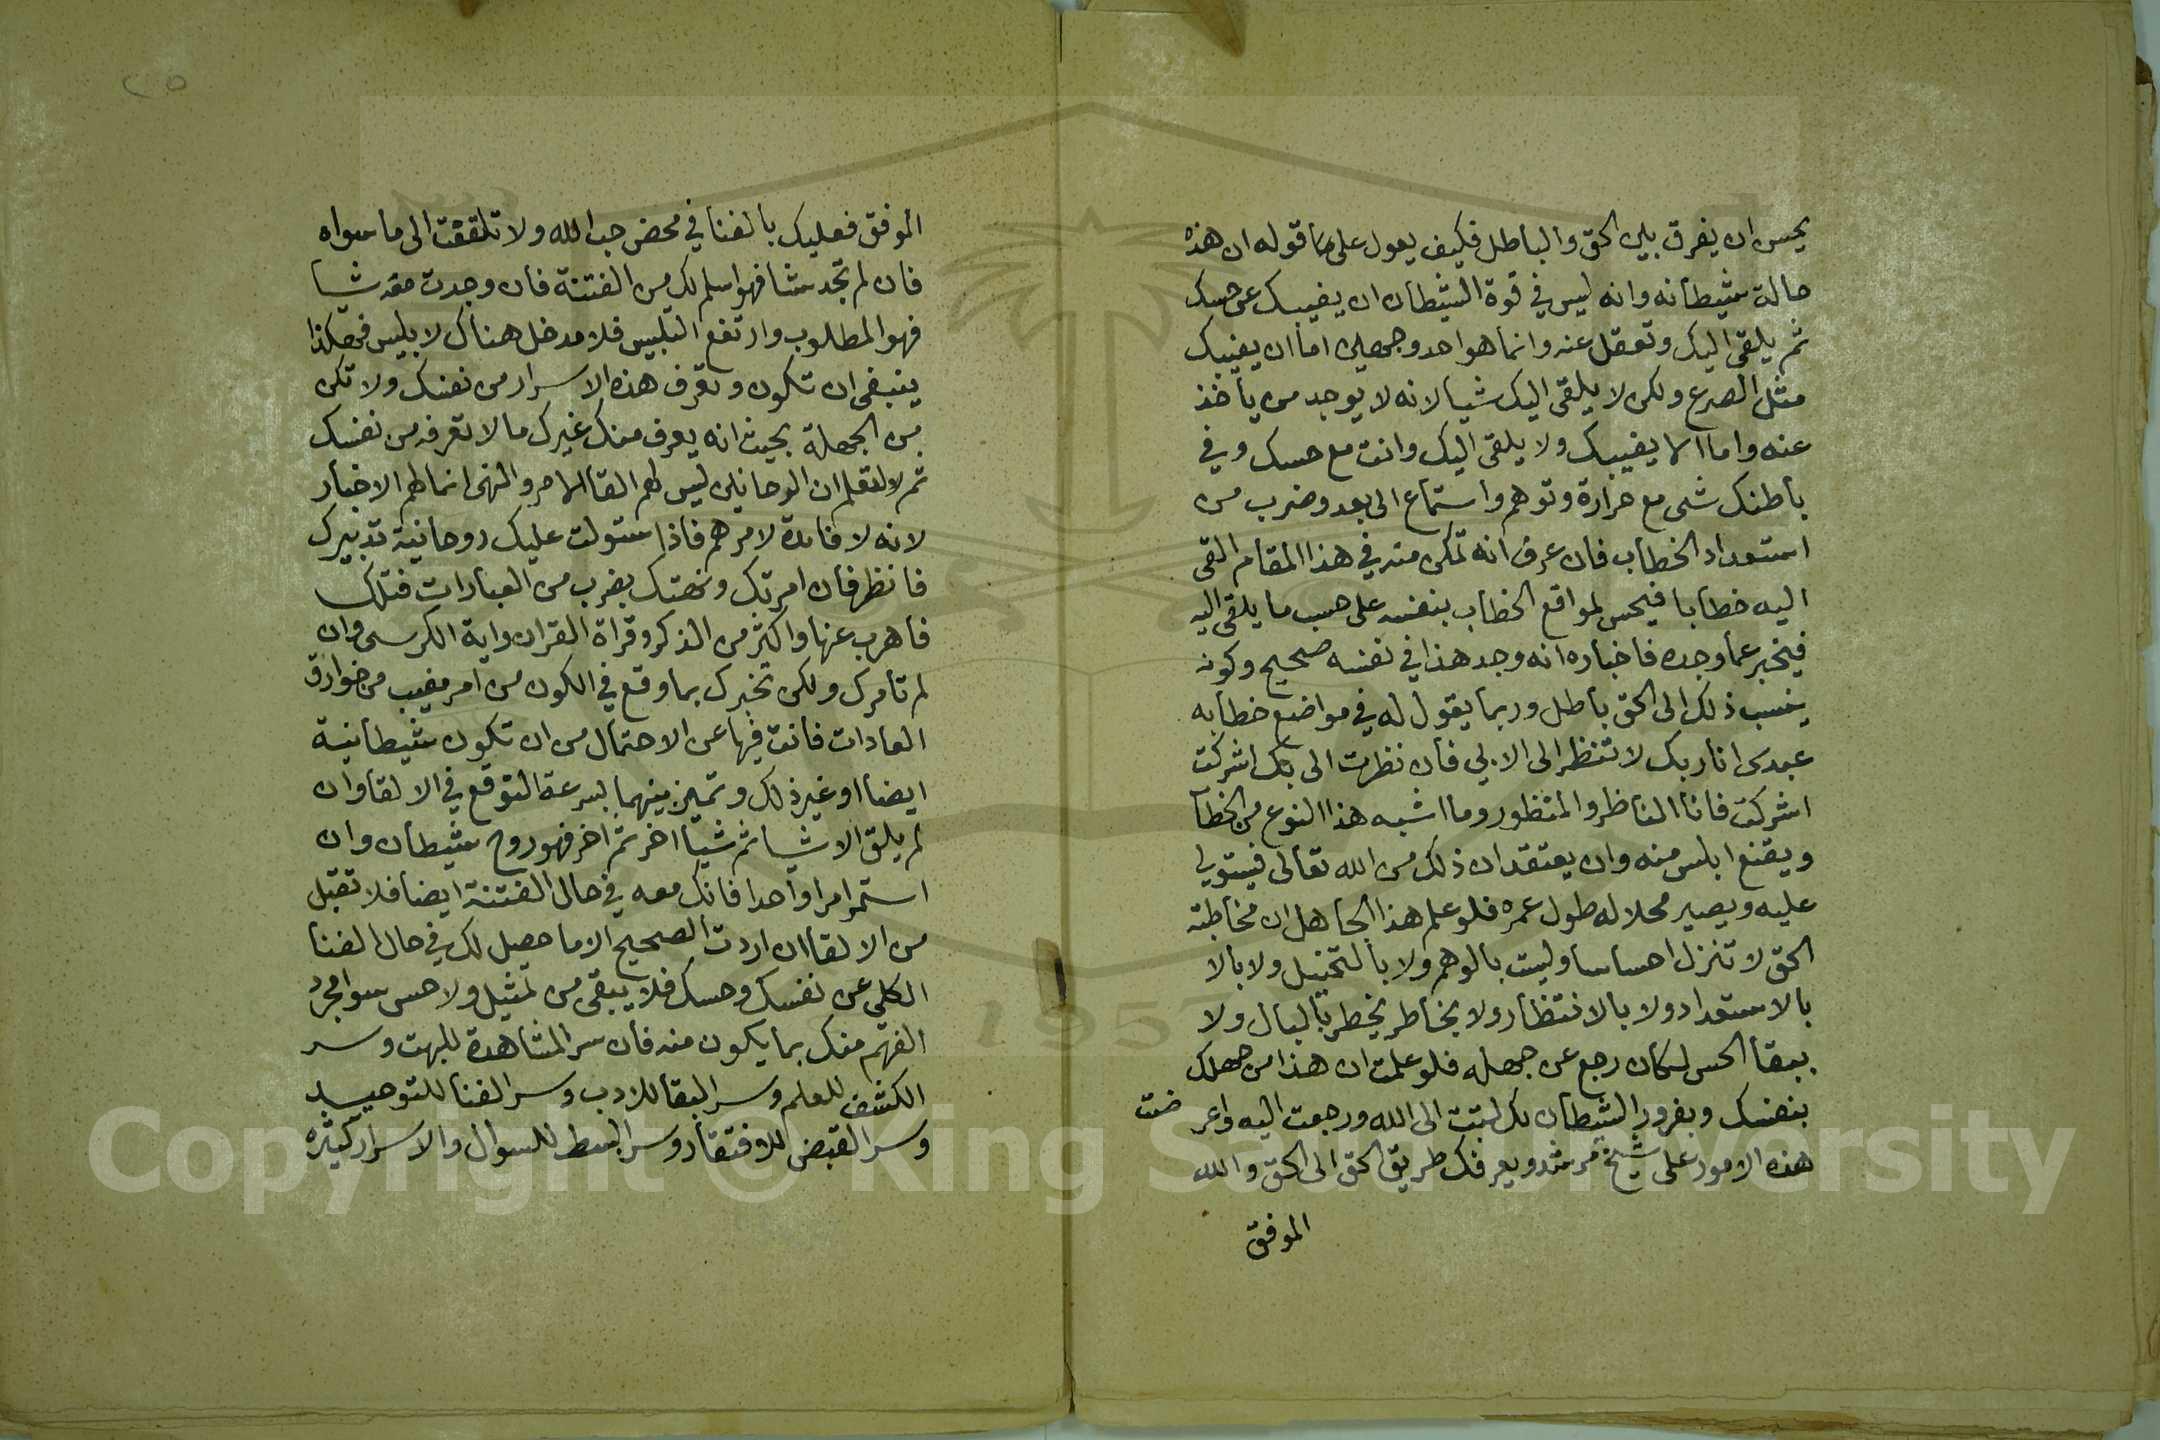 يحسن ان يفرق بين الحق والباطل فكيف يعول على ما قوله ان هذه
حالة شيطانه وانه ليس في قوة الشيطان ان يغيبك عن حسك
ثم يلقى اليك وتعقل عنه وانما هو احد وجهين اما ان يغيبك
مثل الصرع ولكن لا يلقى اليك شيا لانه لا يوجد من ياخذ
عنه واما الا يغيبك ولا يلقى اليك وانت مع حسك وفي
باطنك شى مع حرارة وتوهم واستماع الى بعد وضرب من
استعداد الخطاب فان عرف انه تمكن منه في هذا المقام القى
اليه خطابا فيحس لمواقع الخطاب بنفسه على حسب ما يلقى اليه
فيخبر عما وجده فاخباره انه وجد هذا في نفسه صحيح وكونه
ينسب ذلك الى الحق باطل وربما يقول له في مواضع خطابه
عبدى انا ربك لا تنظر الى الا بي فان نظرت الى بك اشركت
اشركت فانا الناظر والمنظور وما اشبه هذا النوع من الخطا
ويقنع ابلس منه وان يعتقد ان ذلك من الله تعالى فيستولي
عليه ويصير محلا له طول عمره فلو علم هذا الجاهل ان مخاطبة
الحق لا تنزل احساسا وليست بالوهم ولا بالتخيل ولا بالا
بالاستعداد ولا بالانتظار ولا بخاطر يخطر بالبال ولا
ببقا الحس لكان رجع عن جهله فلو علمت ان هذا من جهلك
بنفسك وبغرور الشيطان بك لتبت الى الله ورجعت اليه واعر ضت
هذه الامور على شيخ مرشد ويعرفك طريق الحق الى الحق والله
الموفق
٢٥
الموفق فعليك بالفنا في محض حب الله ولا تلتفت الى ما سواه
فان لم تجد شيا فهو اسلم لك من الفتنة فان وجدت معه شيا
فهو المطلوب وارتفع التلبيس فلا مدخل هناك لا بليس فهكذا
ينبغى ان تكون وتعرف هذه الاسرار من نفسك ولا تكن
من الجهلة بحيث انه يعرف منك غيرك ما لا تعرفه من نفسك
ثم لو لتعلم ان الروحانيين ليس لهم القا الامر والنهى انما لهم الاخبار
لانه لا فائدة لامرهم فاذا ستولت عليك روحانية تدبيرك
فانظر فان امرتك ونهتك بضرب من العبادات فتلك
فاهرب عنها واكثر من الذكر وقراة القران واية الكرسى وان
لم تامرك ولكن تخبرك بما وقع في الكون من امر مغيب من خوارق
العادات فانت فيها عن الاحتمال من ان تكون شيطانية
ايضا او غير ذلك وتميز بينهما بسرعة التوقع في الالقا وان
لم يلق الا شيا ثم شيا اخر ثم اخر فهو روح شيطان وان
استمر امرا واحدا فانك معه في حال الفتنة ايضا فلا تقبل
من الالقا ان اردت الصحيح الا ما حصل لك في حال الفنا
الكلي عن نفسك وحسك فلا يبقى من تمثيل ولا حس سوا مجرد
الفهم منك بما يكون منه فان سر المشاهدة للبهت وسر
الكشف للعلم وسر البقا للادب وسر الفنا للتوحيد
وسر القبض للافتقار وسر البسط للسوال والاسرار كثيره
Copyright © King Saud University
1957